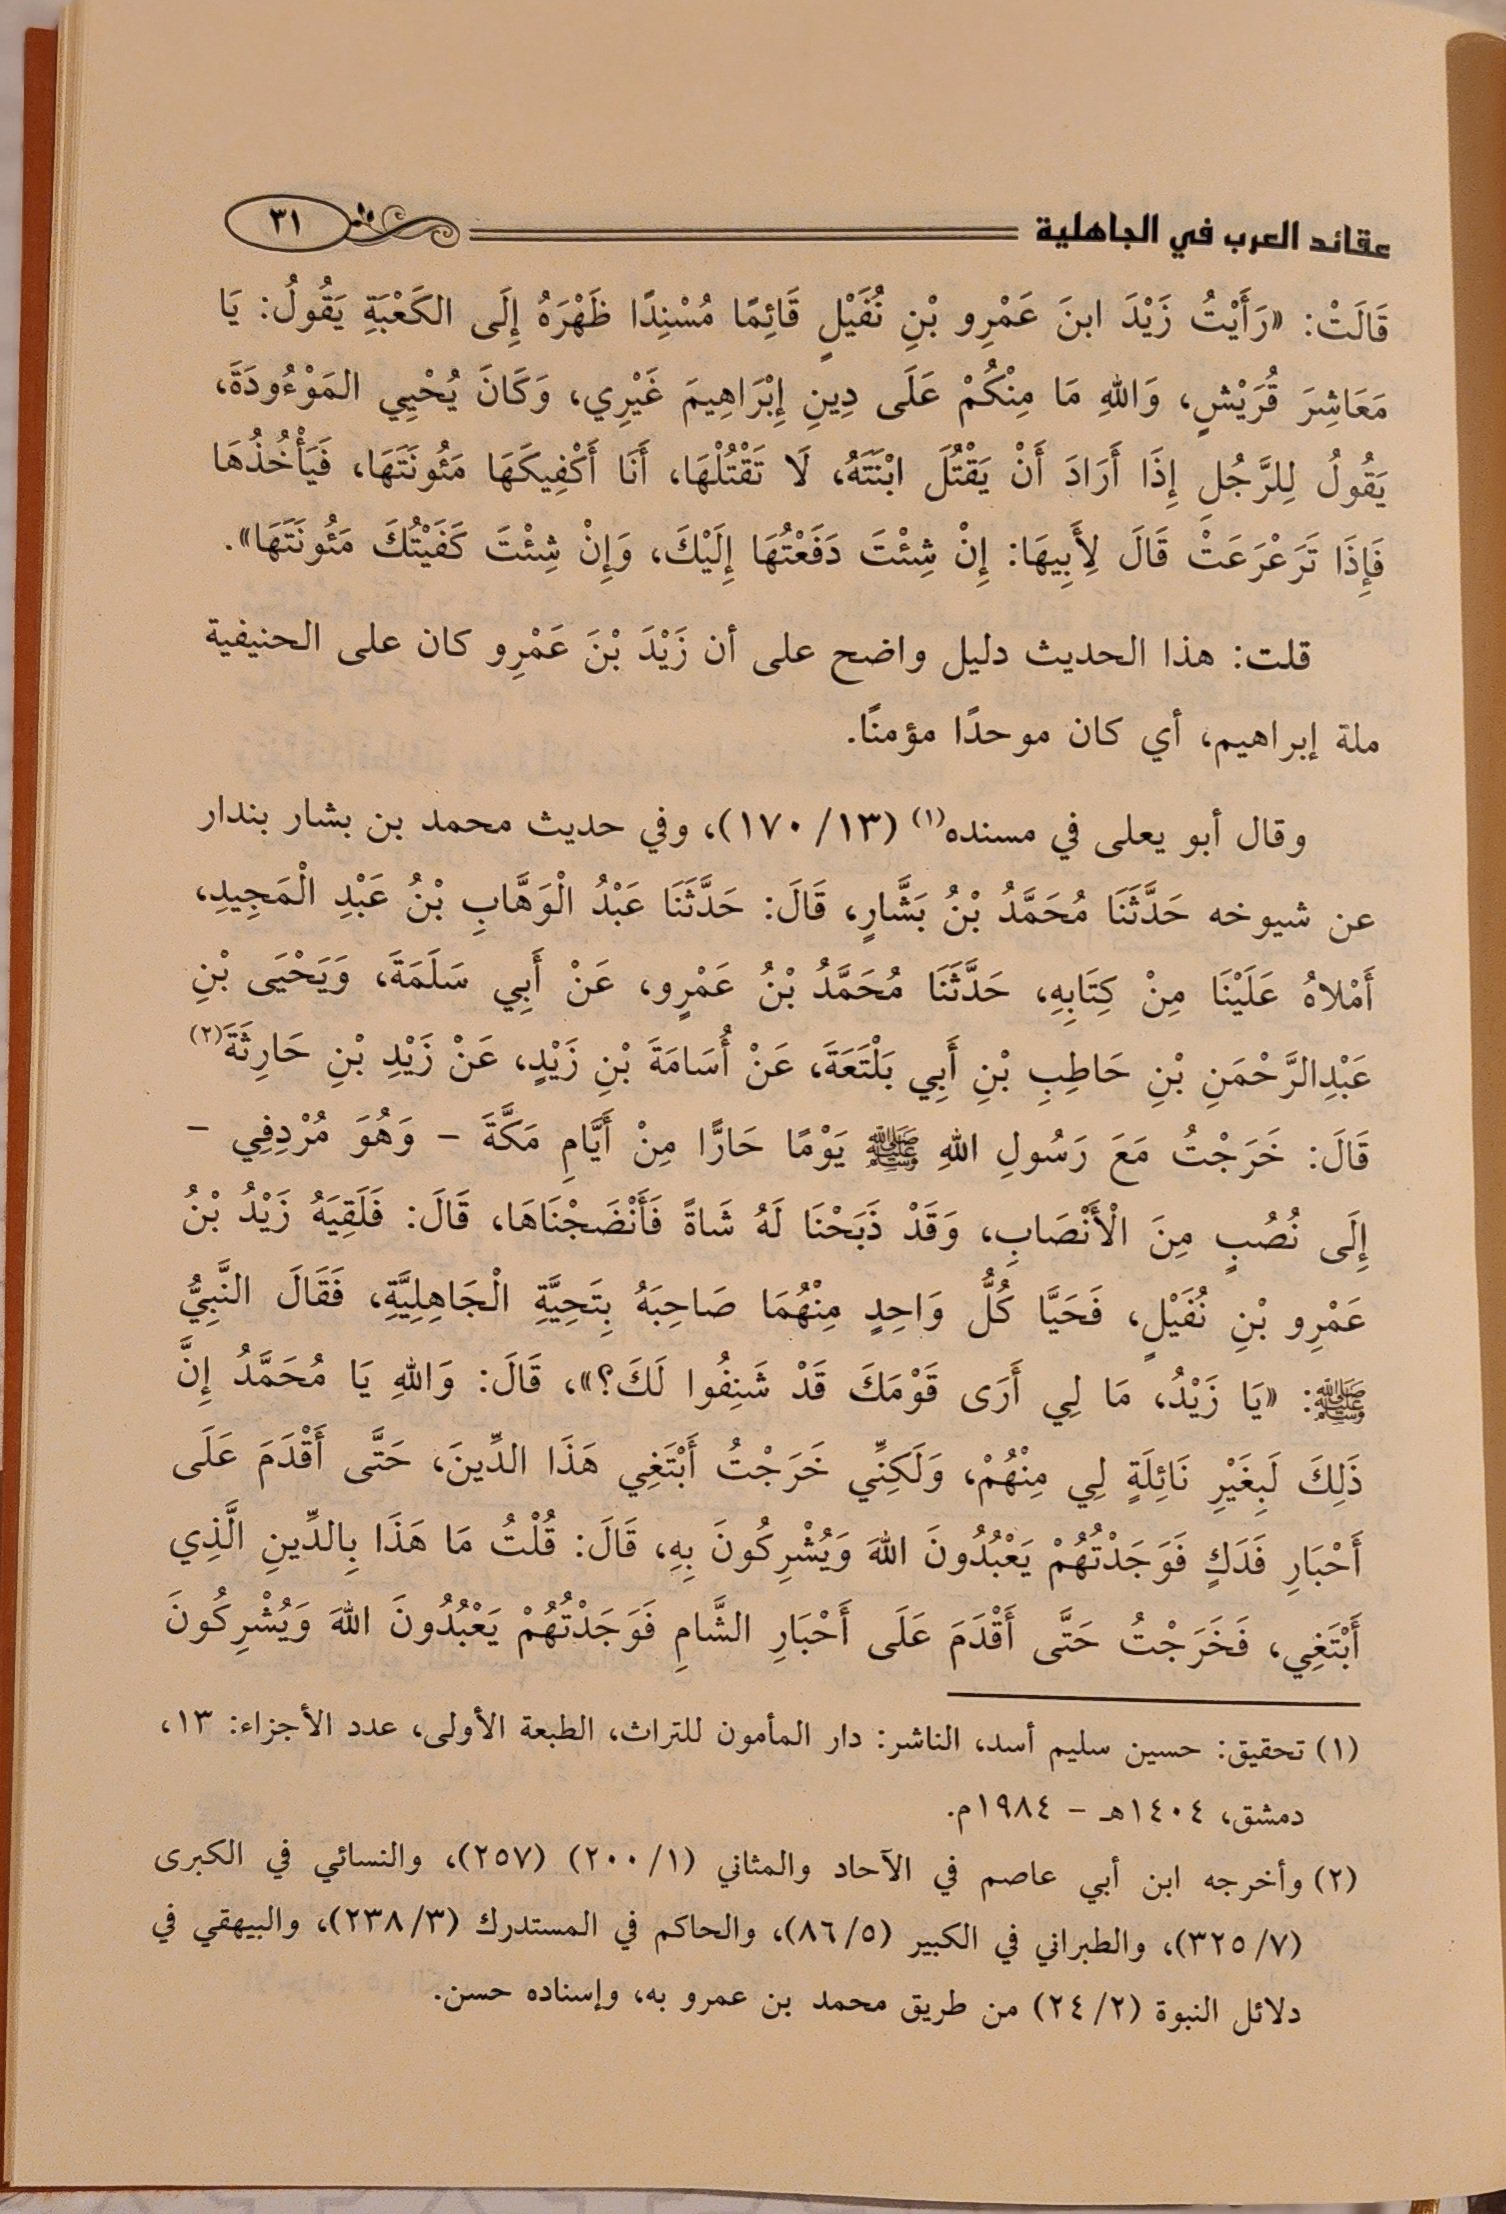 عقائد العرب في الجاهلية
٣١
قَالَتْ: «رَأَيْتُ زَيْدَ ابنَ عَمْرِو بْنِ نُفَيْلٍ قَائِمًا مُسْنِدًا ظَهْرَهُ إِلَى الكَعْبَةِ يَقُولُ: يَا
مَعَاشِرَ قُرَيْشٍ، وَاللهِ مَا مِنْكُمْ عَلَى دِينِ إِبْرَاهِيمَ غَيْرِي، وَكَانَ يُحْيِي المَوْءُودَةَ،
يَقُولُ لِلرَّجُلِ إِذَا أَرَادَ أَنْ يَقْتُلَ ابْنَتَهُ، لَا تَقْتُلْهَا، أَنَا أَكْفِيكَهَا مَئُونَتَهَا، فَيَأْخُذُهَا
فَإِذَا تَرَعْرَعَتْ قَالَ لِأَبِيهَا: إِنْ شِئْتَ دَفَعْتُهَا إِلَيْكَ، وَإِنْ شِئْتَ كَفَيْتُكَ مَئُونَتَهَا».
قلت: هذا الحديث دليل واضح على أن زَيْدَ بْنَ عَمْرِو كان على الحنيفية
ملة إبراهيم، أي كان موحدًا مؤمنًا.
وقال أبو يعلى في مسنده(١) (١٣/ ١٧٠)، وفي حديث محمد بن بشار بندار
عن شيوخه حَدَّثَنَا مُحَمَّدُ بْنُ بَشَّارٍ، قَالَ: حَدَّثَنَا عَبْدُ الْوَهَّابِ بْنُ عَبْدِ الْمَجِيدِ،
أَمْلاهُ عَلَيْنَا مِنْ كِتَابِهِ، حَدَّثَنَا مُحَمَّدُ بْنُ عَمْرٍو، عَنْ أَبِي سَلَمَةَ، وَيَحْيَى بْنِ
عَبْدِالرَّحْمَنِ بْنِ حَاطِبِ بْنِ أَبِي بَلْتَعَةَ، عَنْ أُسَامَةَ بْنِ زَيْدٍ، عَنْ زَيْدِ بْنِ حَارِثَةَ(٢)
قَالَ: خَرَجْتُ مَعَ رَسُولِ اللهِ ﷺ يَوْمًا حَارًّا مِنْ أَيَّامِ مَكَّةَ – وَهُوَ مُرْدِفِي –
إِلَى نُصُبٍ مِنَ الْأَنْصَابِ، وَقَدْ ذَبَحْنَا لَهُ شَاةً فَأَنْضَجْنَاهَا، قَالَ: فَلَقِيَهُ زَيْدُ بْنُ
عَمْرِو بْنِ نُفَيْلٍ، فَحَيَّا كُلُّ وَاحِدٍ مِنْهُمَا صَاحِبَهُ بِتَحِيَّةِ الْجَاهِلِيَّةِ، فَقَالَ النَّبِيُّ
ﷺ: «يَا زَيْدُ، مَا لِي أَرَى قَوْمَكَ قَدْ شَنِفُوا لَكَ؟»، قَالَ: وَاللهِ يَا مُحَمَّدُ إِنَّ
ذَلِكَ لَبِغَيْرِ نَائِلَةٍ لِي مِنْهُمْ، وَلَكِنِّي خَرَجْتُ أَبْتَغِي هَذَا الدِّينَ، حَتَّى أَقْدَمَ عَلَى
أَحْبَارِ فَدَكٍ فَوَجَدْتُهُمْ يَعْبُدُونَ اللهَ وَيُشْرِكُونَ بِهِ، قَالَ: قُلْتُ مَا هَذَا بِالدِّينِ الَّذِي
أَبْتَغِي، فَخَرَجْتُ حَتَّى أَقْدَمَ عَلَى أَحْبَارِ الشَّامِ فَوَجَدْتُهُمْ يَعْبُدُونَ اللهَ وَيُشْرِكُونَ
(١) تحقيق: حسين سليم أسد، الناشر: دار المأمون للتراث، الطبعة الأولى، عدد الأجزاء: ١٣،
دمشق، ١٤٠٤هـ – ١٩٨٤م.
(٢) وأخرجه ابن أبي عاصم في الآحاد والمثاني (١/ ٢٠٠) (٢٥٧)، والنسائي في الكبرى
(٧/ ٣٢٥)، والطبراني في الكبير (٥/ ٨٦)، والحاكم في المستدرك (٣/ ٢٣٨)، والبيهقي في
دلائل النبوة (٢/ ٢٤) من طريق محمد بن عمرو به، وإسناده حسن.